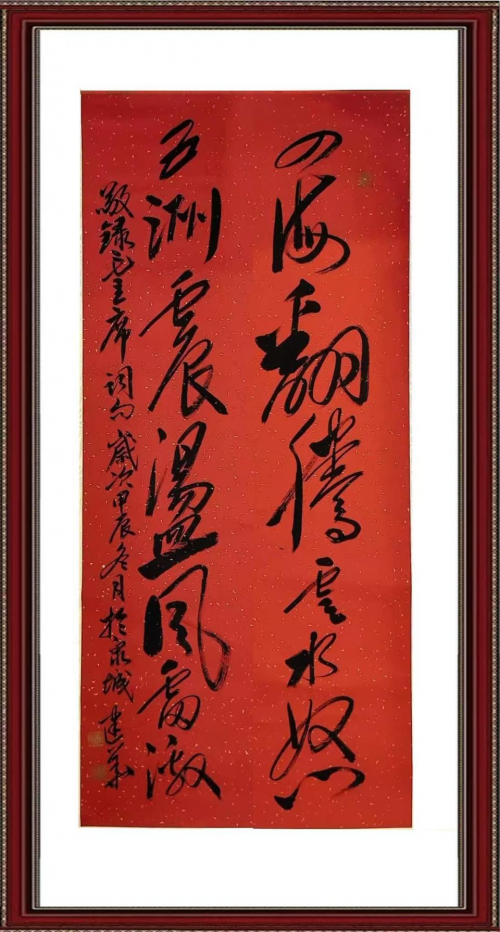 四海翻腾雲水怒
五洲震盪風雷激
敬録毛主席词句歲次甲辰冬月於泉城建華